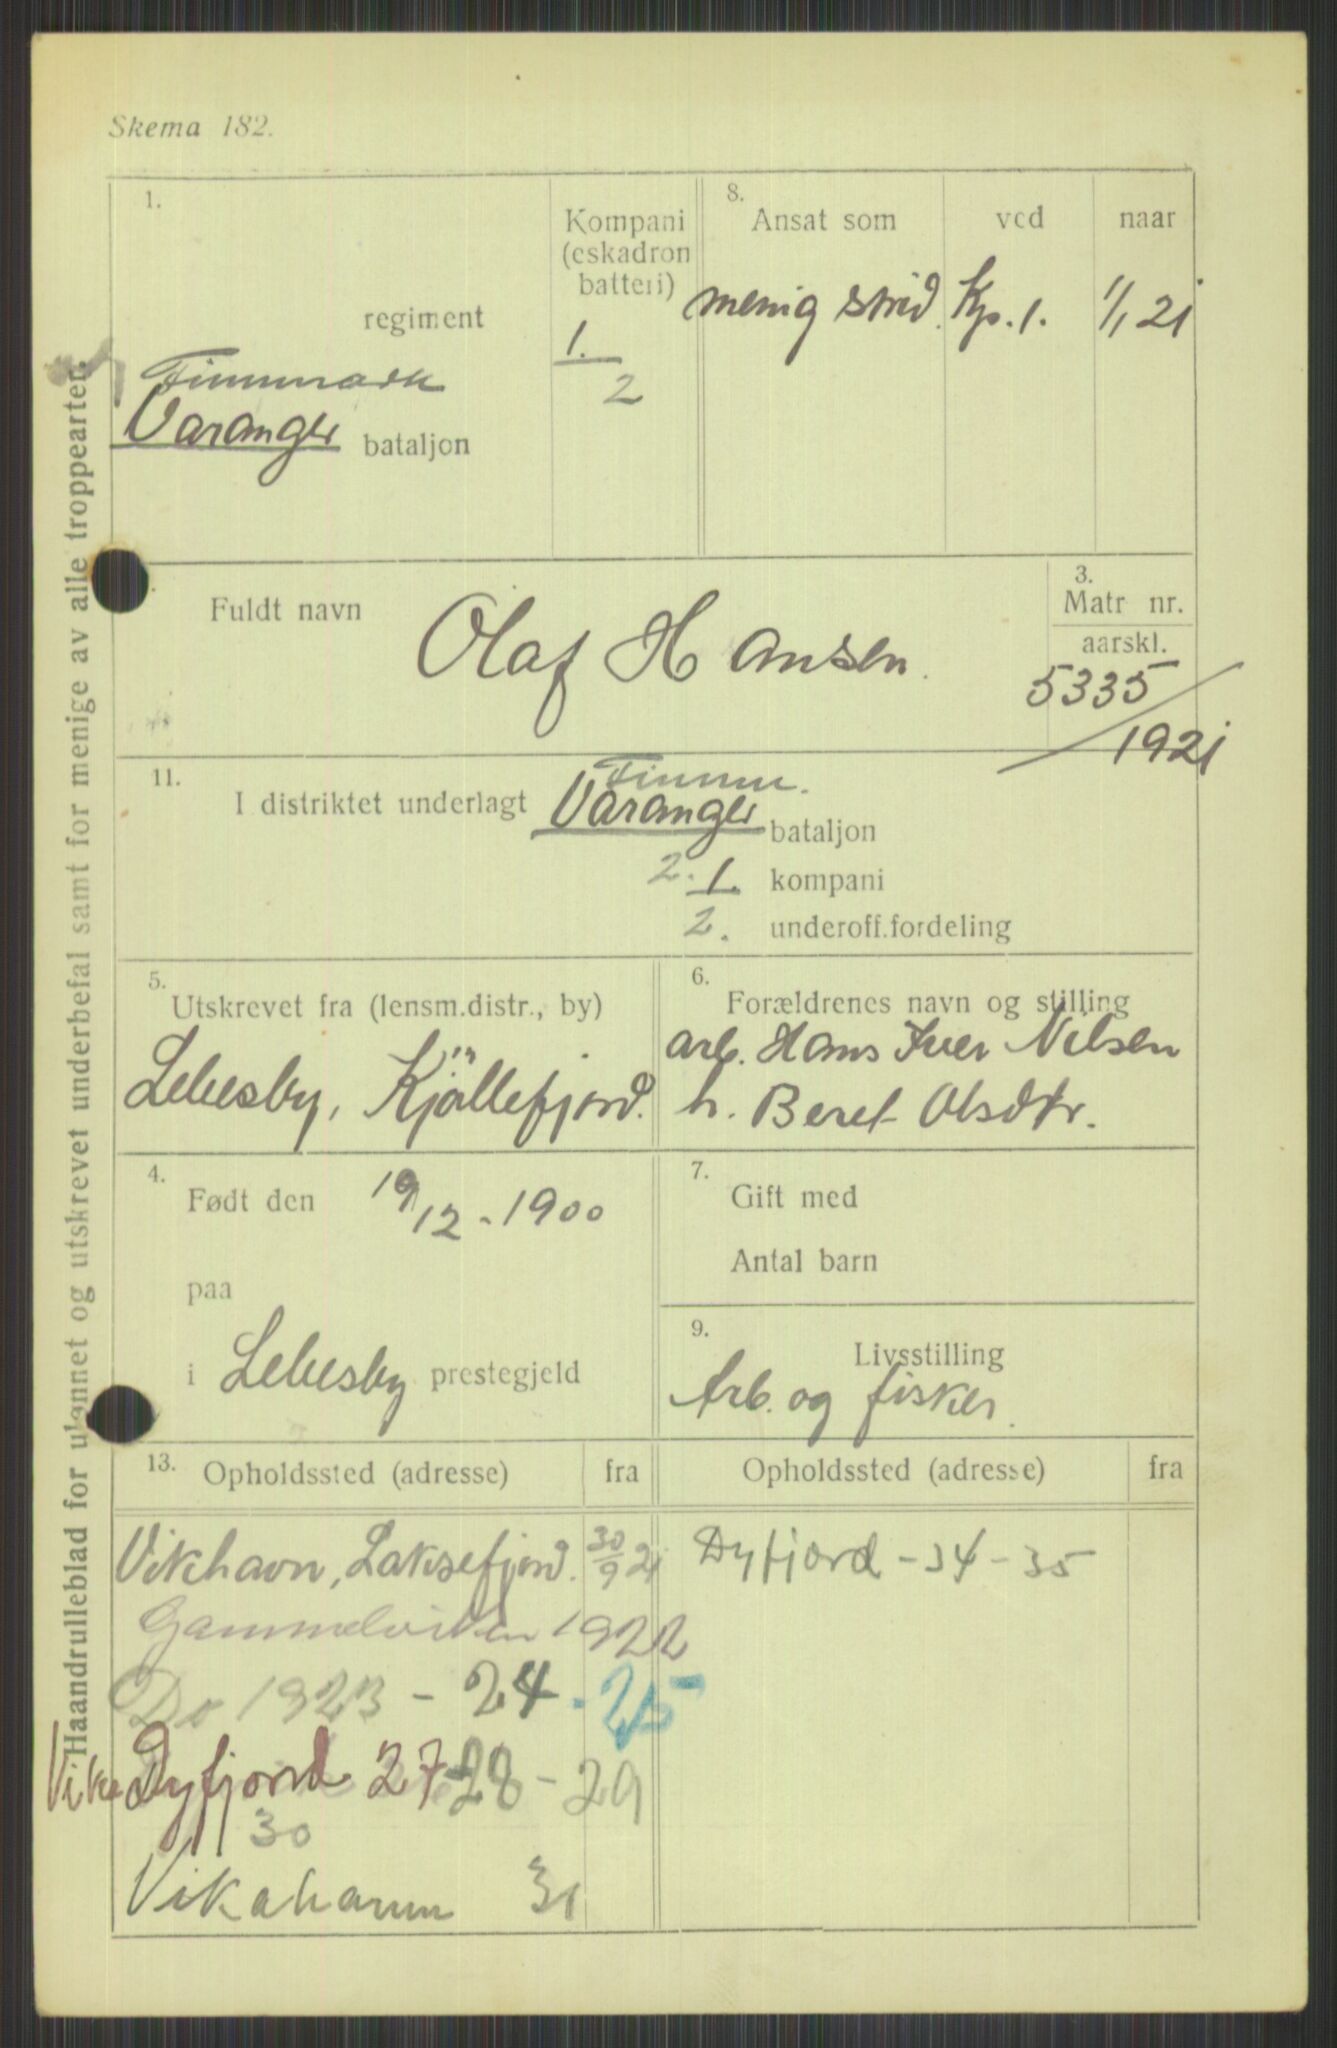 Skema 182.
Haandrulleblad for utlannet og utskrevet underbefal samt for menige av alle troppearter.
1.
regiment
Finnmark
Varanger bataljon
Kompani
(eskadron
batteri)
1.
2
8.
Ansat som
ved
naar
menig strid. Kp. 1. 1/1 21
Fuldt navn
Olaf Hansen.
3.
Matr nr.
aarskl.
5335
/1921
11.
Finnm.
I distriktet underlagt Varanger bataljon
2. 1. kompani
2. underoff.fordeling
5.
Utskrevet fra (lensm.distr., by)
Lebesby, Kjöllefjord.
6.
Forældrenes navn og stilling
arb. Hans Iver Nilsen
h. Beret Olsdtr.
4.
Født den 19/12 - 1900
paa
i Lebesby prestegjeld
7.
Gift med
Antal barn
9.
Livsstilling
Arb. og fisker.
13. Opholdssted (adresse) fra
Vikhavn, Laksefjord. 30/9 21
Gammelviken 1922
Do 1923 - 24 - 25
Vika Dyfjord 27-28 - 29
30
Vikahamn 31
Opholdssted (adresse) fra
Dyfjord - 34 - 35